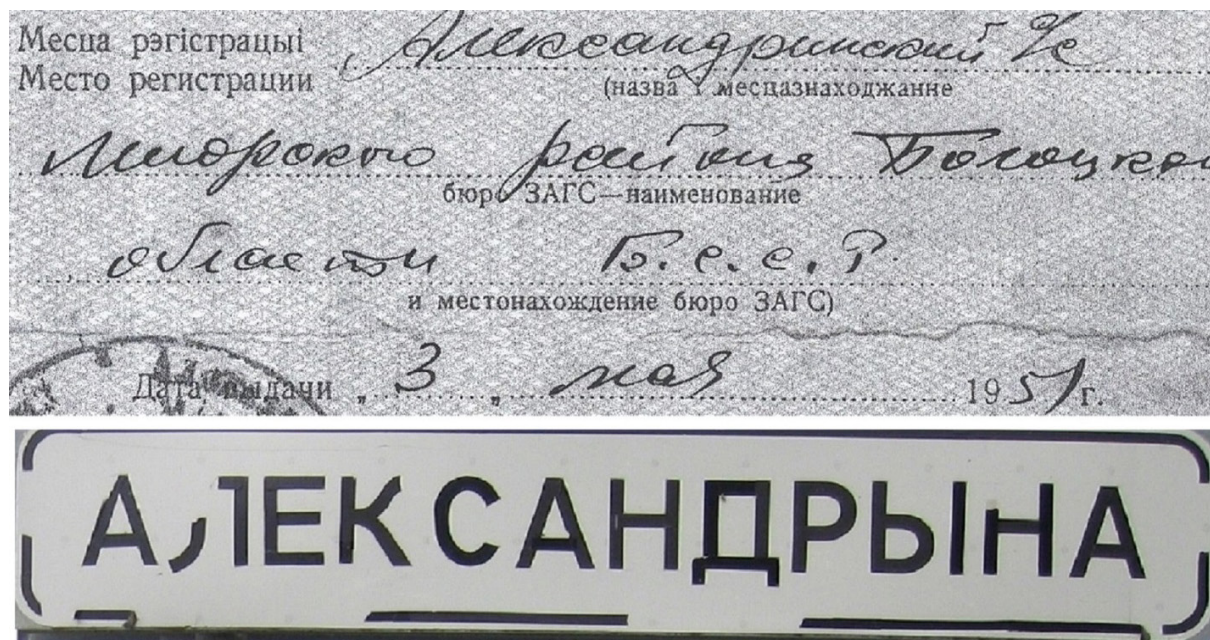 Месца рэгістрацыі
Место регистрации Александринский с/с
(назва і месцазнаходжанне
Миорского района Полоцкой
бюро ЗАГС—наименование
области Б.С.С.Р.
и местонахождение бюро ЗАГС)
Дата выдачи „ 3 „ мая 1951 г.
АЛЕКСАНДРЫНА